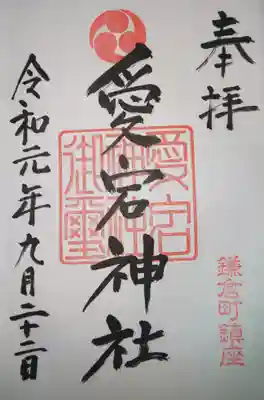 奉拝
鎌倉町鎮座
愛宕神社
愛宕神社御璽
令和元年九月二十二日